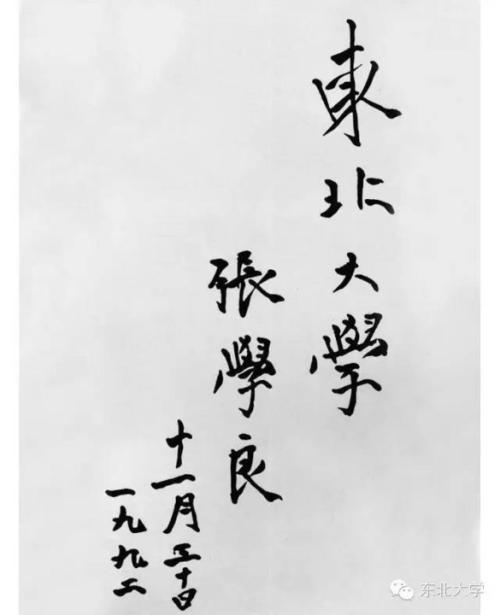 東北大學
張學良
十一月三十日
一九九二
东北大学